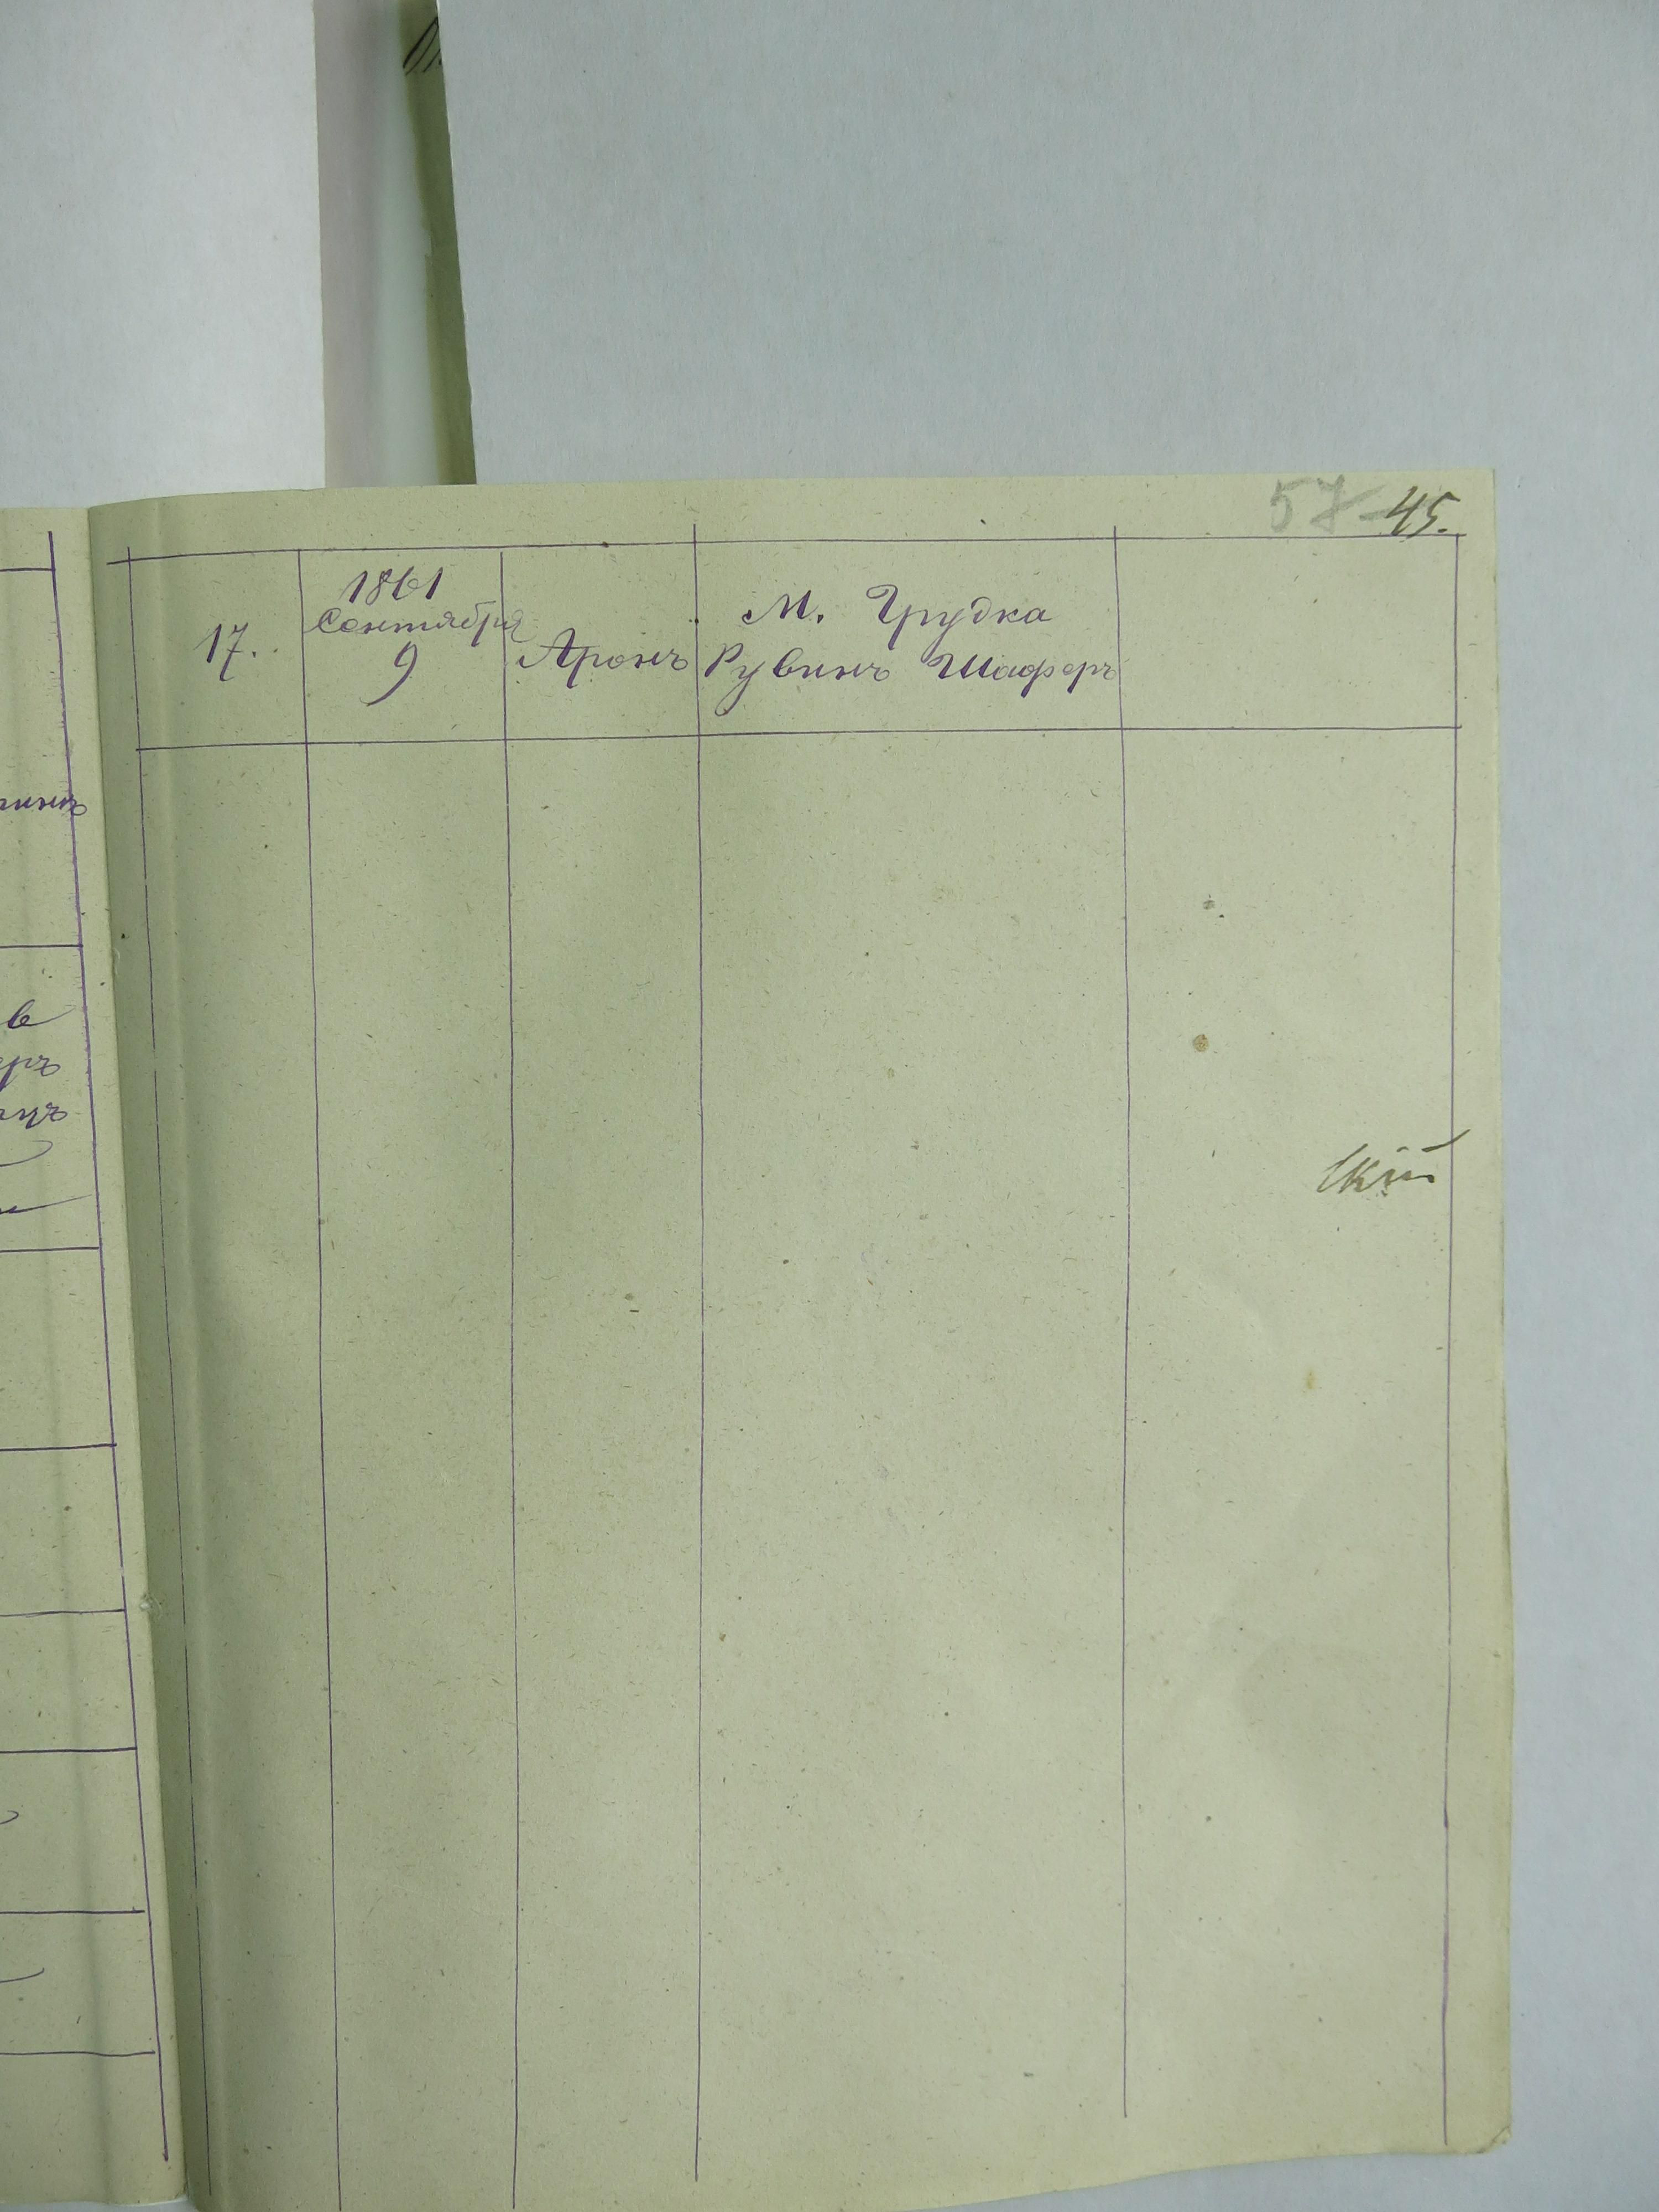 57 45.
17.
1861
Сентября
9
Аронъ
М. Грудка
Рувинъ Шаферъ
скій
в
еръ